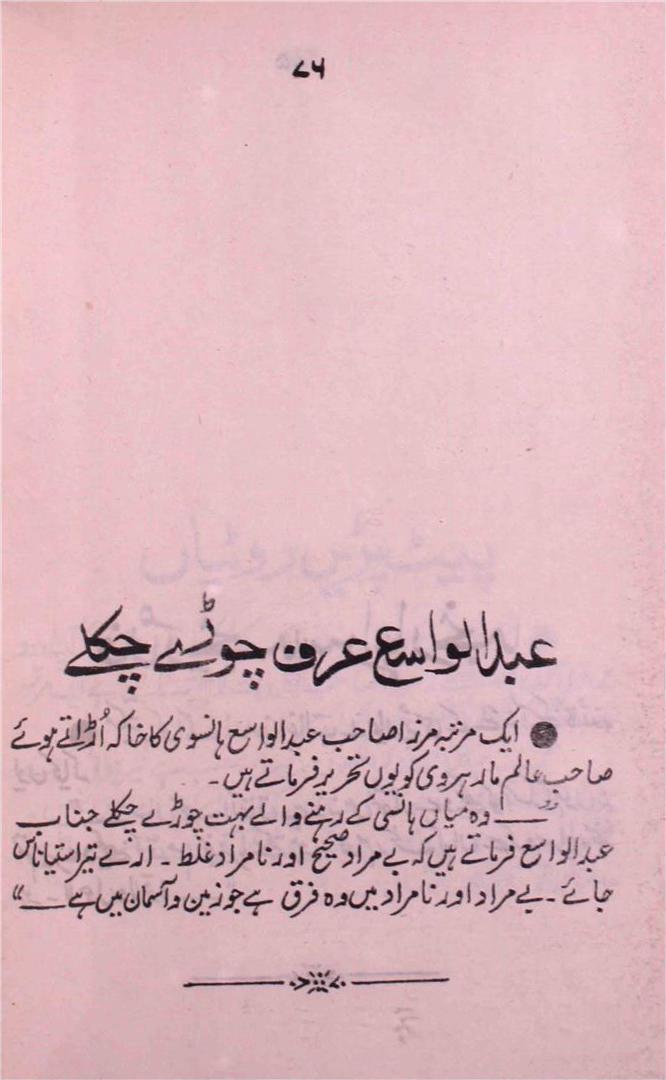 ۷۶
عبدالواسع عرف چوڑے چکلے
● ایک مرتبہ مرزا صاحب عبدالواسع ہانسوی کا خاکہ اُڑاتے ہوئے
صاحب عالم مارہروی کو یوں تحریر فرماتے ہیں۔
وہ میاں ہانسی کے رہنے والے بہت چوڑے چکلے جناب
عبدالواسع فرماتے ہیں کہ بے مراد صحیح اور نامراد غلط۔ ارے تیرا ستیاناس
جائے۔ بے مراد اور نامراد میں وہ فرق ہے جو زمین و آسمان میں ہے ــــ"